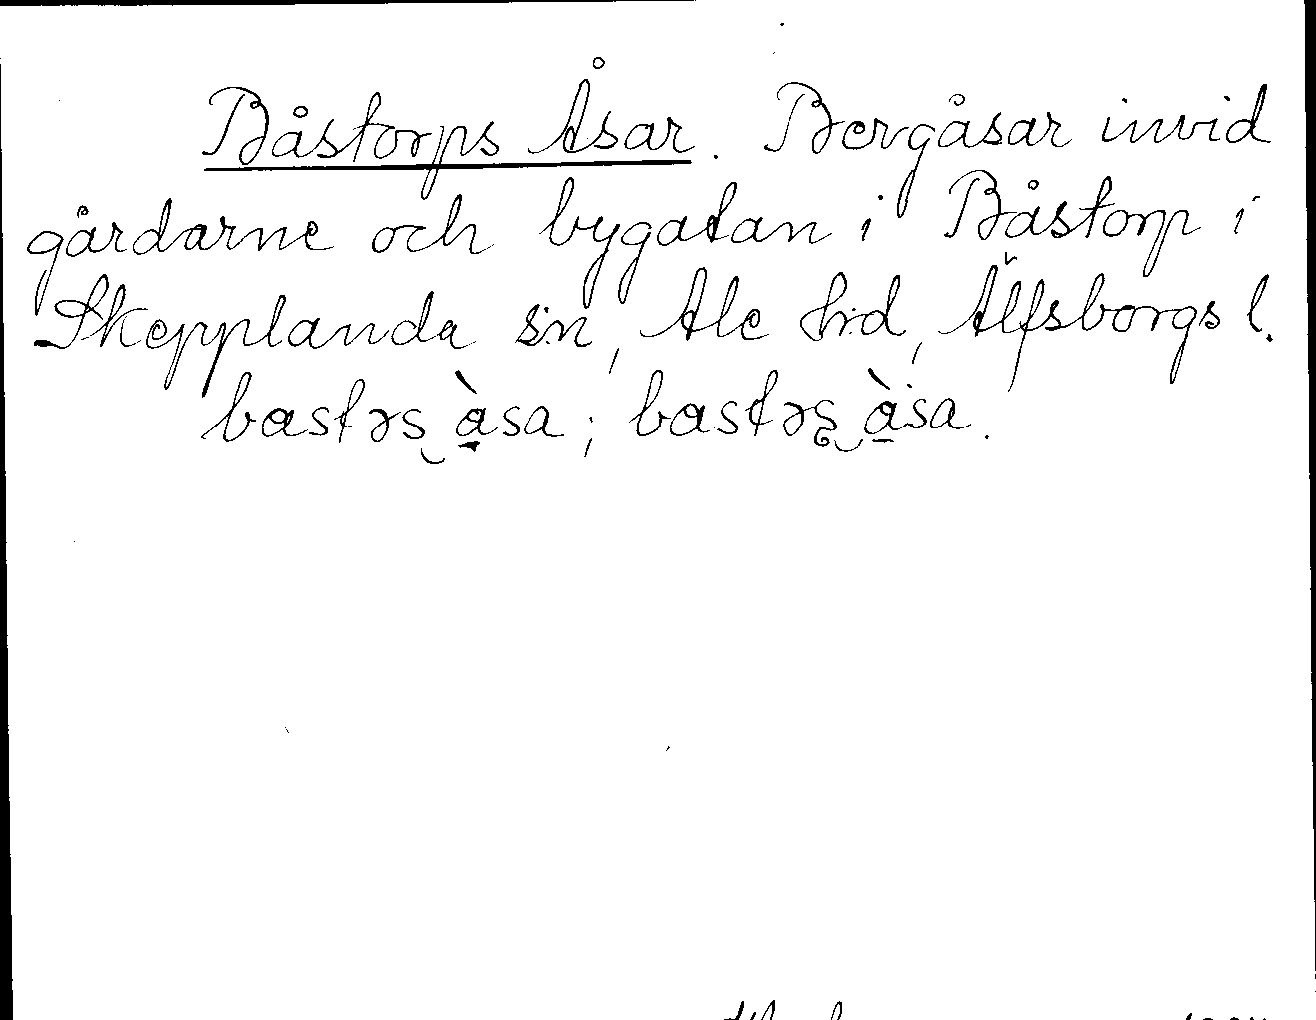 Båstorps Åsar. Bergåsar invid
gårdarne och bygatan i Båstorp i
Skepplanda s:n, Ale h:d, Älfsborgs l.
bastəs àsa; bastəs àsa.